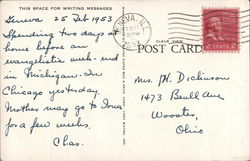 THIS SPACE FOR WRITING MESSAGES
Geneva 25 Feb 1953
Spending two days at
home before an
evangelistic week-end
in Michigan. In
Chicago yesterday.
Mother may go to Iowa
for a few weeks.
Chas.
GENEVA, ILL.
POST CARD
2 CENTS 2
Mrs. H. Dickinson
1473 Beall Ave
Wooster,
Ohio